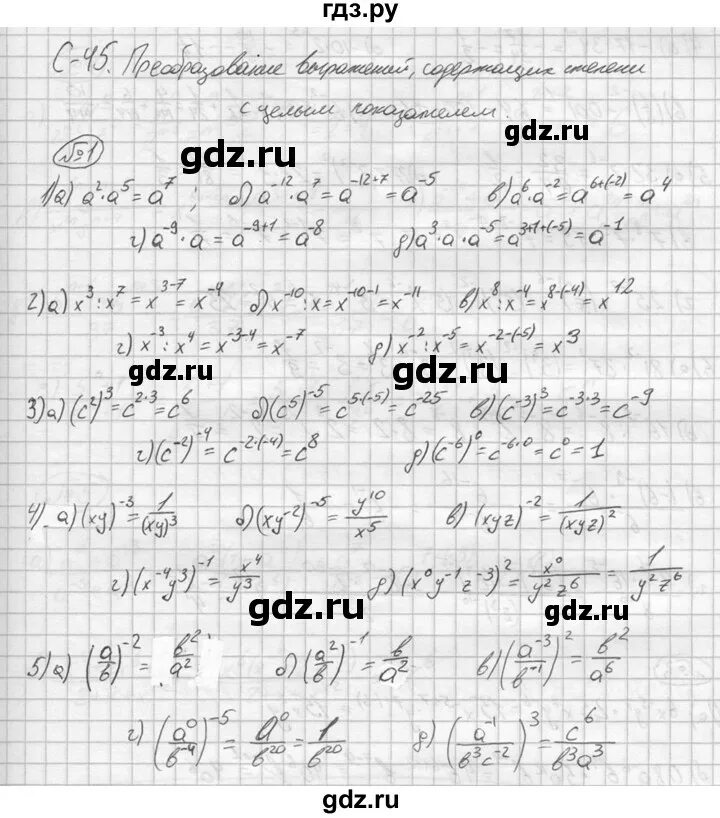 гдз.ру
С-45. Преобразование выражений, содержащих степени
с целым показателем.
gdz.ru
№1
gdz.ru
1) а) a²·a⁵=a⁷; б) a⁻¹²·a⁷=a⁻¹²⁺⁷=a⁻⁵ в) a⁶·a⁻²=a⁶⁺⁽⁻²⁾=a⁴
г) a⁻⁹·a=a⁻⁹⁺¹=a⁻⁸ д) a³·a·a⁻⁵=a³⁺¹⁺⁽⁻⁵⁾=a⁻¹
gdz.ru gdz.ru
2) а) x³:x⁷=x³⁻⁷=x⁻⁴ б) x⁻¹⁰:x=x⁻¹⁰⁻¹=x⁻¹¹ в) x⁸:x⁻⁴=x⁸⁻⁽⁻⁴⁾=x¹²
г) x⁻³:x⁴=x⁻³⁻⁴=x⁻⁷ д) x⁻²:x⁻⁵=x⁻²⁻⁽⁻⁵⁾=x³
gdz.ru gdz.ru
3) а) (c²)³=c²·³=c⁶ б) (c⁵)⁻⁵=c⁵·⁽⁻⁵⁾=c⁻²⁵ в) (c⁻³)³=c⁻³·³=c⁻⁹
г) (c⁻²)⁻⁴=c⁻²·⁽⁻⁴⁾=c⁸ д) (c⁻⁶)⁰=c⁻⁶·⁰=c⁰=1
gdz.ru
4) а) (xy)⁻³=1/(xy)³ б) (xy⁻²)⁻⁵=y¹⁰/x⁵ в) (xyz)⁻²=1/(xyz)²
г) (x⁻⁴y³)⁻¹=x⁴/y³ д) (x⁰y⁻¹z⁻³)²=x⁰/y²z⁶=1/y²z⁶
gdz.ru gdz.ru
5) а) (a/b)⁻²=b²/a² б) (a²/b)⁻¹=b/a² в) (a⁻³/b⁻¹)²=b²/a⁶
gdz.ru
г) (a⁰/b⁻⁴)⁻⁵=a⁰/b²⁰=1/b²⁰ д) (a⁻¹/b³c⁻²)³=c⁶/b³a³
gdz.ru
gdz.ru